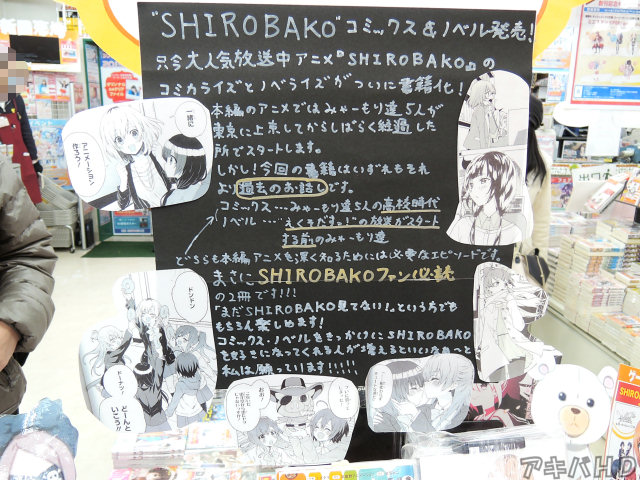 "SHIROBAKO"コミックス&ノベル発売!
只今大人気放送中アニメ『SHIROBAKO』の
コミカライズとノベライズがついに書籍化!
本編のアニメではみゃーもり達5人が
東京に上京してからしばらく経過した
所でスタートします。
しかし!今回の書籍はいずれもそれ
より過去のお話しです。
コミックス…みゃーもり達5人の高校時代
ノベル……"えくそだすっ!"の放送がスタート
する前のみゃーもり達
どちらも本編アニメを深く知るためには必要なエピソードです。
まさにSHIROBAKOファン必読
の2冊です!!!
「まだSHIROBAKO見てない!」という方でも
もちろん楽しめます!
コミックス・ノベルをきっかけにSHIROBAKO
を好きになってくれる人が増えるといいなぁっと
私は願っています!!!!!
一緒に
アニメーション
作ろう!
ドンドン
ドーナツ!
どーんと
いこう!!
アキバHD